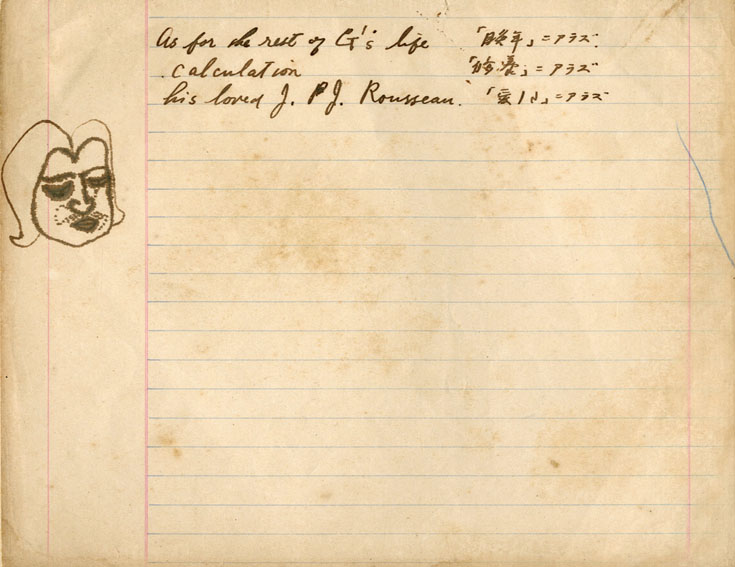 As for the rest of G's life 「晩年」ニアラズ.
calculation 「修養」ニアラズ
his loved J. P J. Rousseau. ニアラズ